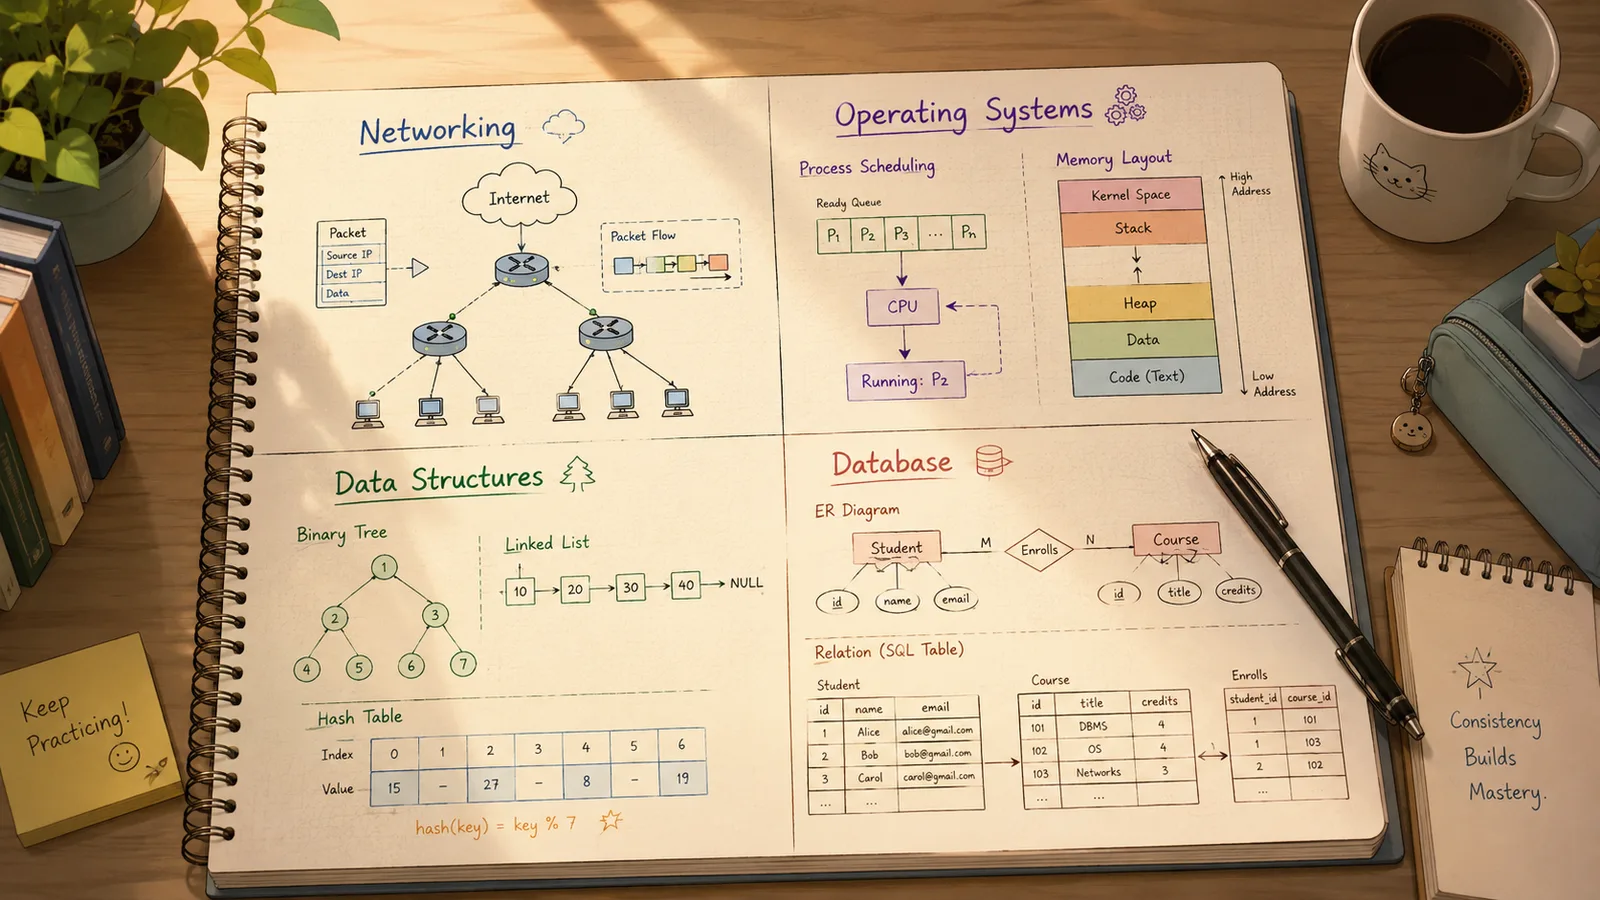 Networking
Internet
Packet
Source IP
Dest IP
Data
Packet Flow
Operating Systems
Process Scheduling
Ready Queue
P1 P2 P3 ... Pn
CPU
Running: P2
Memory Layout
Kernel Space
Stack
Heap
Data
Code (Text)
High
Address
Low
Address
Data Structures
Binary Tree
1
2 3
4 5 6 7
Linked List
10 20 30 40 NULL
Hash Table
Index 0 1 2 3 4 5 6
Value 15 – 27 – 8 – 19
hash(key) = key % 7
Database
ER Diagram
Student M Enrolls N Course
id name email
id title credits
Relation (SQL Table)
Student
id name email
1 Alice alice@gmail.com
2 Bob bob@gmail.com
3 Carol carol@gmail.com
... ...
Course
id title credits
101 DBMS 4
102 OS 4
103 Networks 3
... ...
Enrolls
student_id course_id
1 101
1 103
2 102
...
Keep
Practicing!
Consistency
Builds
Mastery.